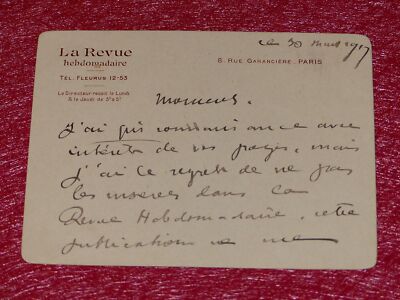 La Revue
hebdomadaire
TÉL. FLEURUS 12-53
Le Directeur reçoit le Lundi
& le Jeudi de 3h à 5h
8, RUE GARANCIÈRE, PARIS
ce 30 mars 1917
Monsieur,
J'ai pris connaissance avec
intérêt de vos pages, mais
j'ai le regret de ne pas
les insérer dans la
Revue Hebdomadaire, cette
publication ne me